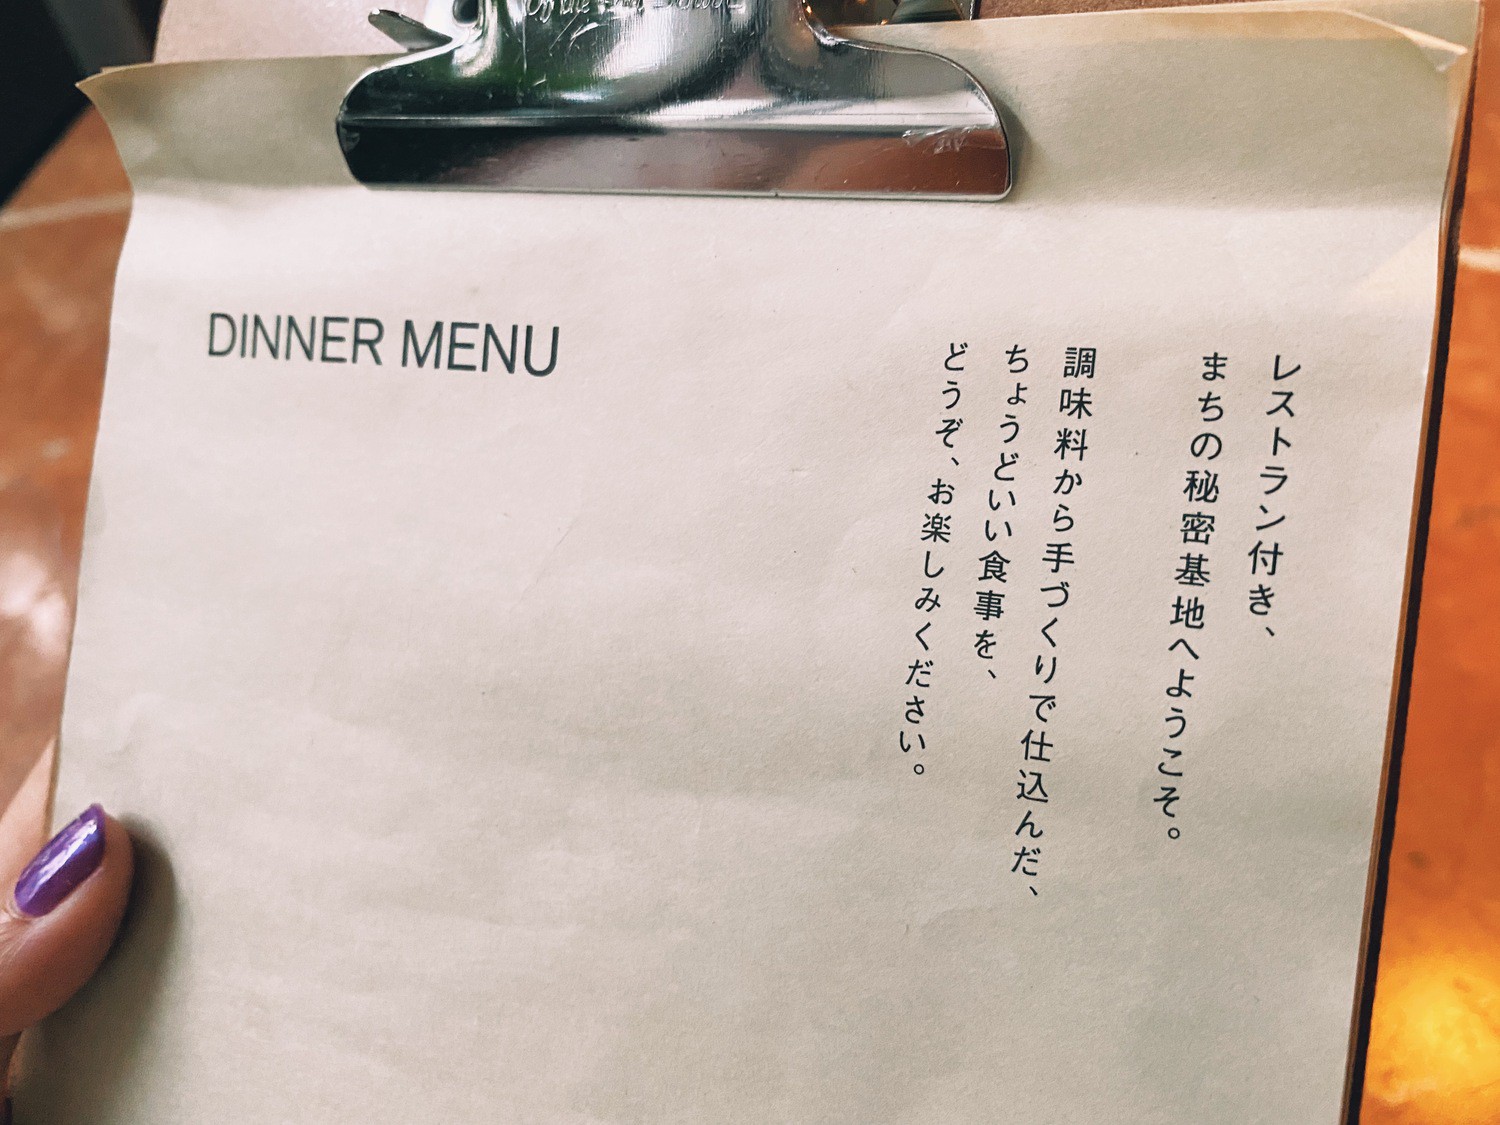 DINNER MENU
レストラン付き、
まちの秘密基地へようこそ。
調味料から手づくりで仕込んだ、
ちょうどいい食事を、
どうぞ、お楽しみください。